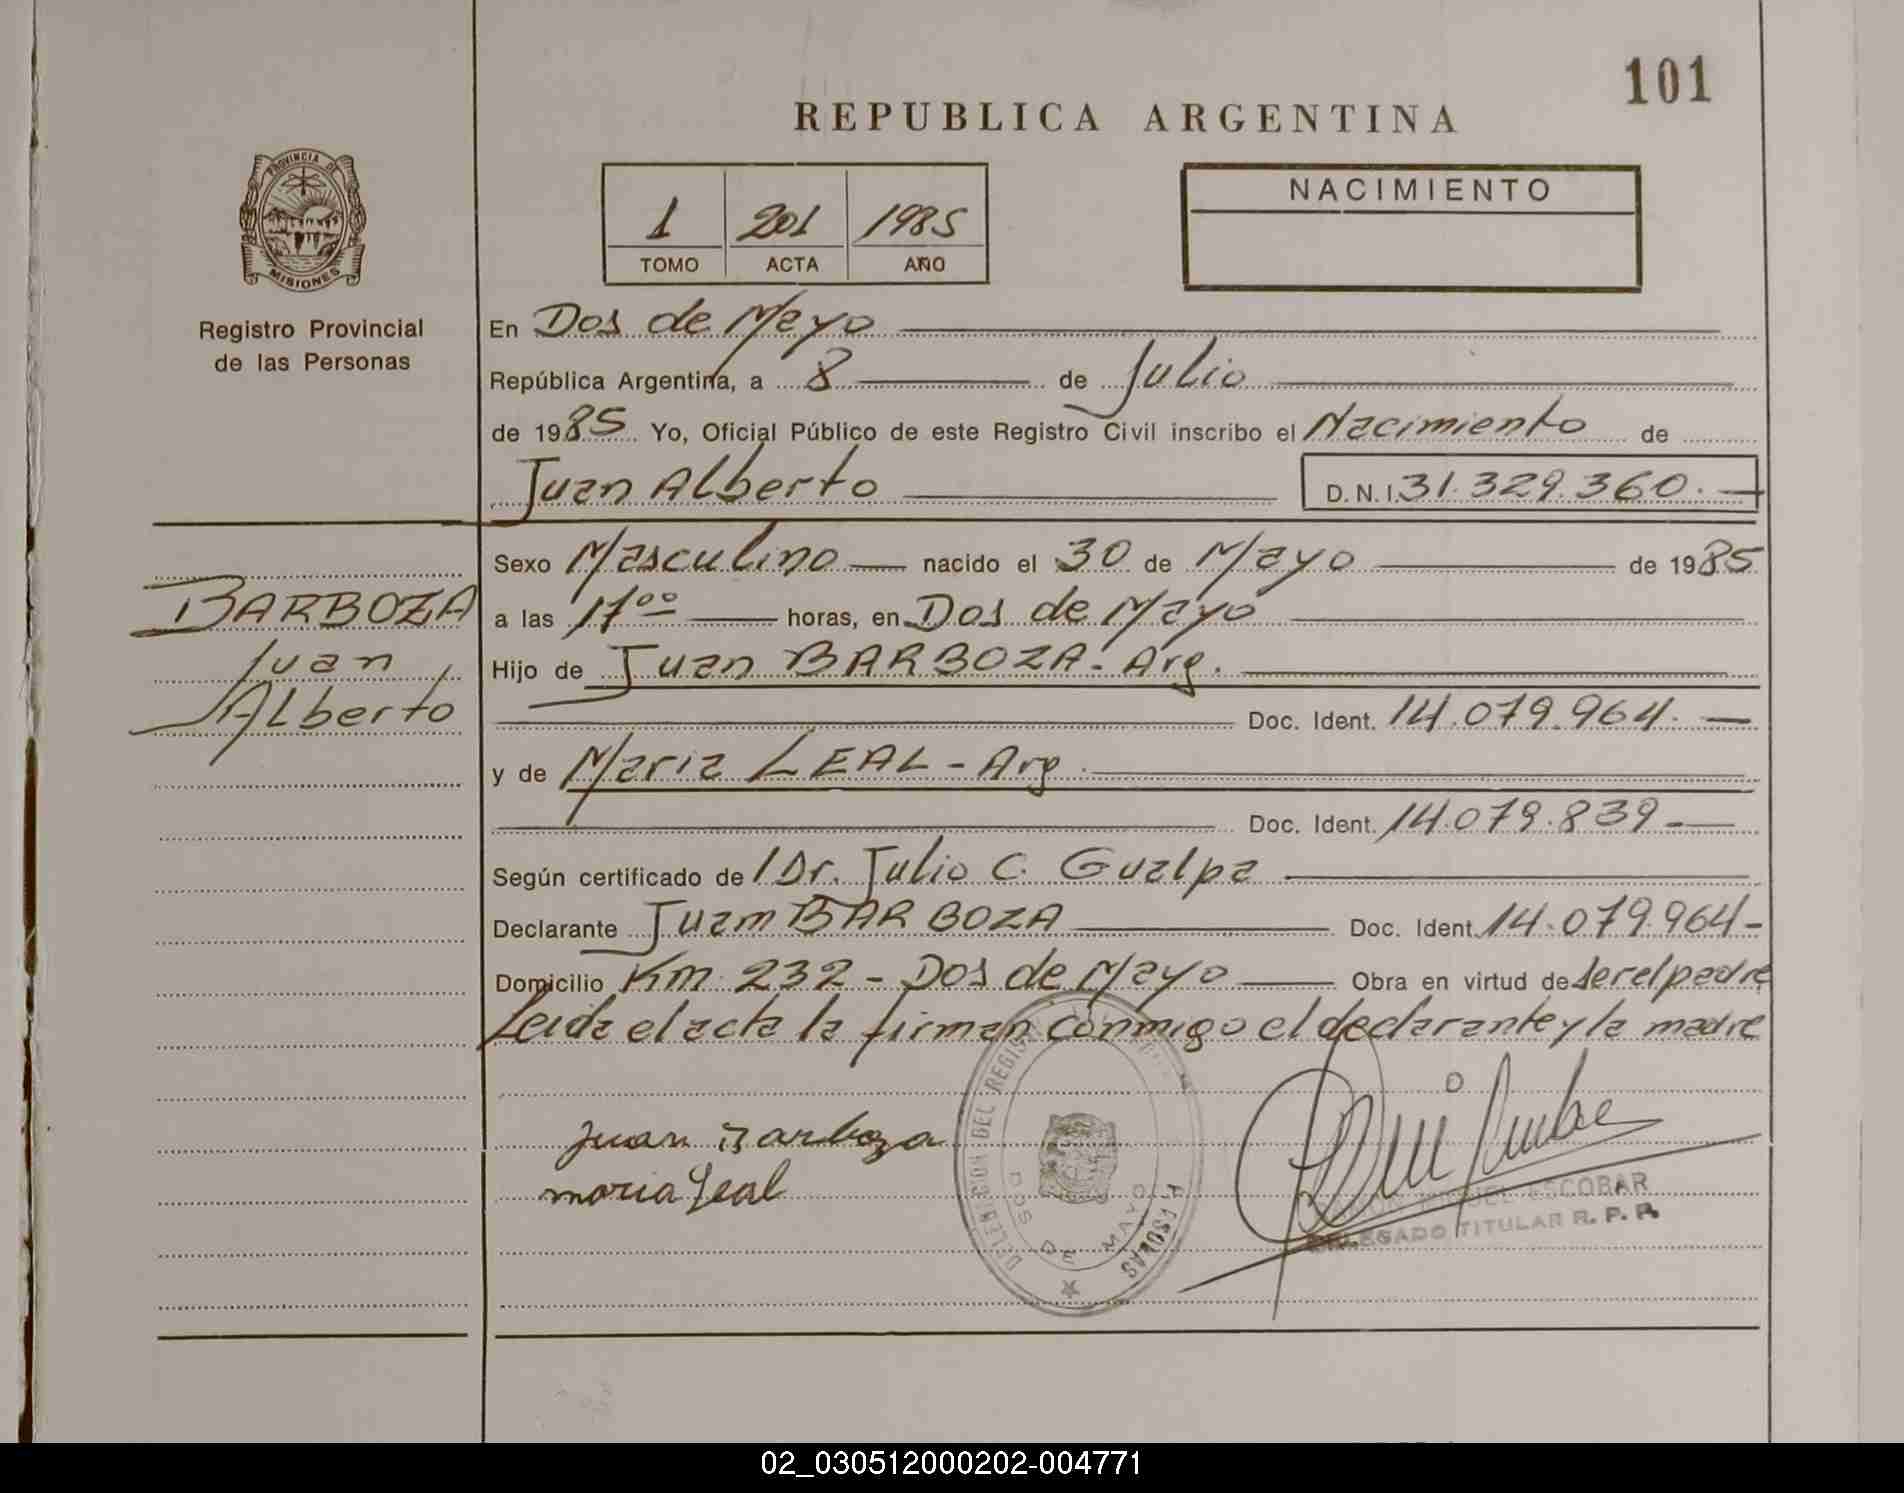 101
REPUBLICA ARGENTINA
PROVINCIA DE
MISIONES
Registro Provincial
de las Personas
1 201 1985
TOMO ACTA AÑO
NACIMIENTO
En Dos de Mayo
República Argentina, a 8 de Julio
de 1985 Yo, Oficial Público de este Registro Civil inscribo el Nacimiento de
Juan Alberto D.N.I. 31.329.360.-
BARBOZA
Juan
Alberto
Sexo Masculino nacido el 30 de Mayo de 1985
a las 17 00 horas, en Dos de Mayo
Hijo de Juan BARBOZA - Arg.
Doc. Ident. 14.079.964.-
y de Maria LEAL - Arg.
Doc. Ident. 14.079.839.-
Según certificado de l Dr. Julio C. Gualpa
Declarante Juan BARBOZA Doc. Ident. 14.079.964-
Domicilio Km 232 - Dos de Mayo Obra en virtud de ser el padre
Leida el acta la firman conmigo el declarante y la madre
Juan Barboza
maria Leal
DEL REGISTRO
DOS DE MAYO
ESCOBAR
DELEGADO TITULAR R. P. P.
02_030512000202-004771